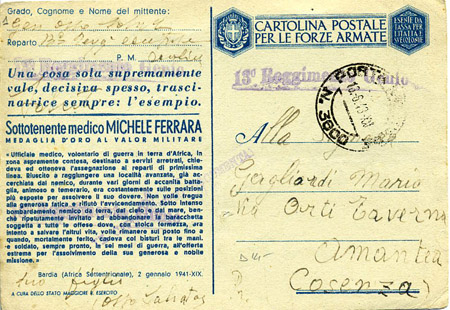 Grado, Cognome e Nome del mittente:
Reparto
P. M.
Una cosa sola supremamente
vale, decisiva spesso, trasci-
natrice sempre: l'esempio.
Sottotenente medico MICHELE FERRARA
MEDAGLIA D'ORO AL VALOR MILITARE
«Ufficiale medico, volontario di guerra in terra d'Africa, in
zona sommamente contesa, destinato a servizi arretrati, chiede-
va ed otteneva l'assegnazione al reparti di primissima
linea. Riuscito a raggiungere una località avanzata, già ac-
cerchiata dal nemico, durante vari giorni di accanita batta-
glia, animoso e temerario, era costantemente sulle posizioni
più esposte per assolvere il suo dovere. Non volle tregua
alla generosa fatica e rifiutò l'avvicendamento. Sotto intenso
bombardamento nemico da terra, dal cielo e dal mare, ben-
chè ripetutamente invitato ad abbandonare la baracchetta
soggetta a tutte le offese dove, con stoica fermezza, era
intento a salvare l'altrui vita, volle rimanere sul posto fino a
quando, mortalmente ferito, cadeva coi bisturi tra le mani.
e soldato, sempre pronto, in sei mesi di guerra, all'offerta
estrema per l'assolvimento della sua generosa e nobile
missione.»
Bardia (Africa Settentrionale), 2 gennaio 1941-XIX.
A CURA DELLO STATO MAGGIORE R. ESERCITO
CARTOLINA POSTALE
PER LE FORZE ARMATE
ESENTE DA
TASSA PER
L'ITALIA E
13° Reggimento
N. 3600
Alla
Gagliardi Mario
Via Orti Taverna
Amantea
Cosenza